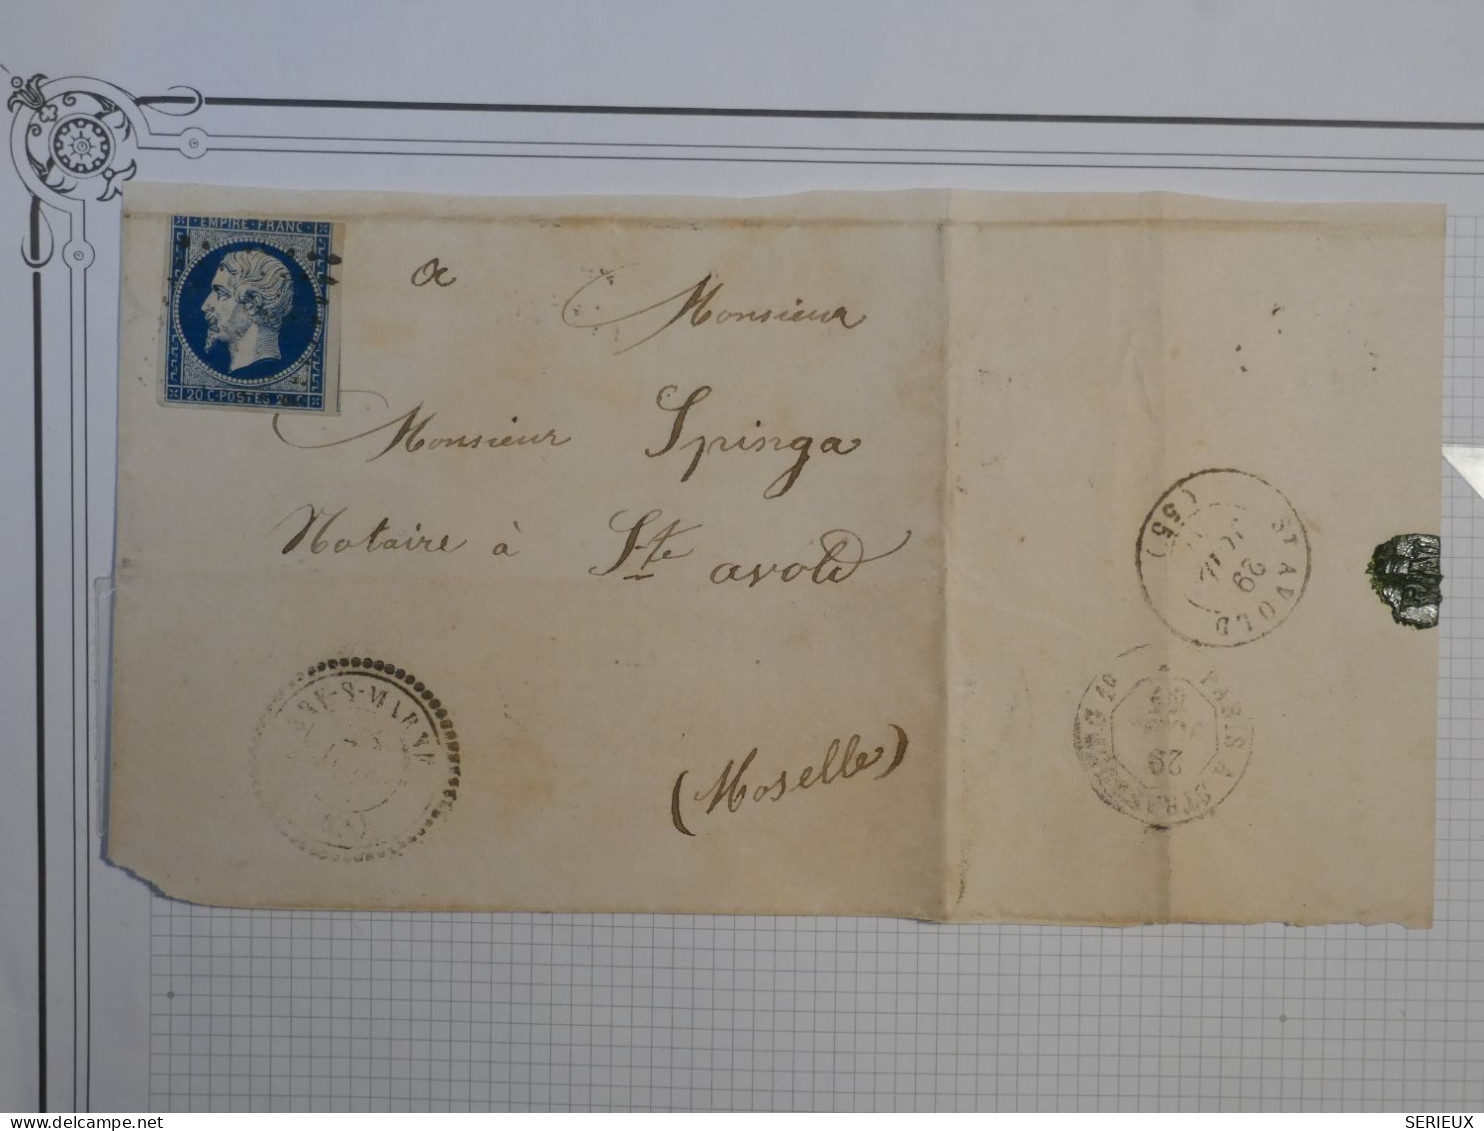 EMPIRE · FRANC ·
20 C · POSTES 20 C
a Monsieur
Monsieur Spinga
Notaire à Ste avold
(Moselle)
S-MARNE
ST AVOLD
29
JUIL
(55)
PARIS A STRASBOURG 1º
29
SERIEUX